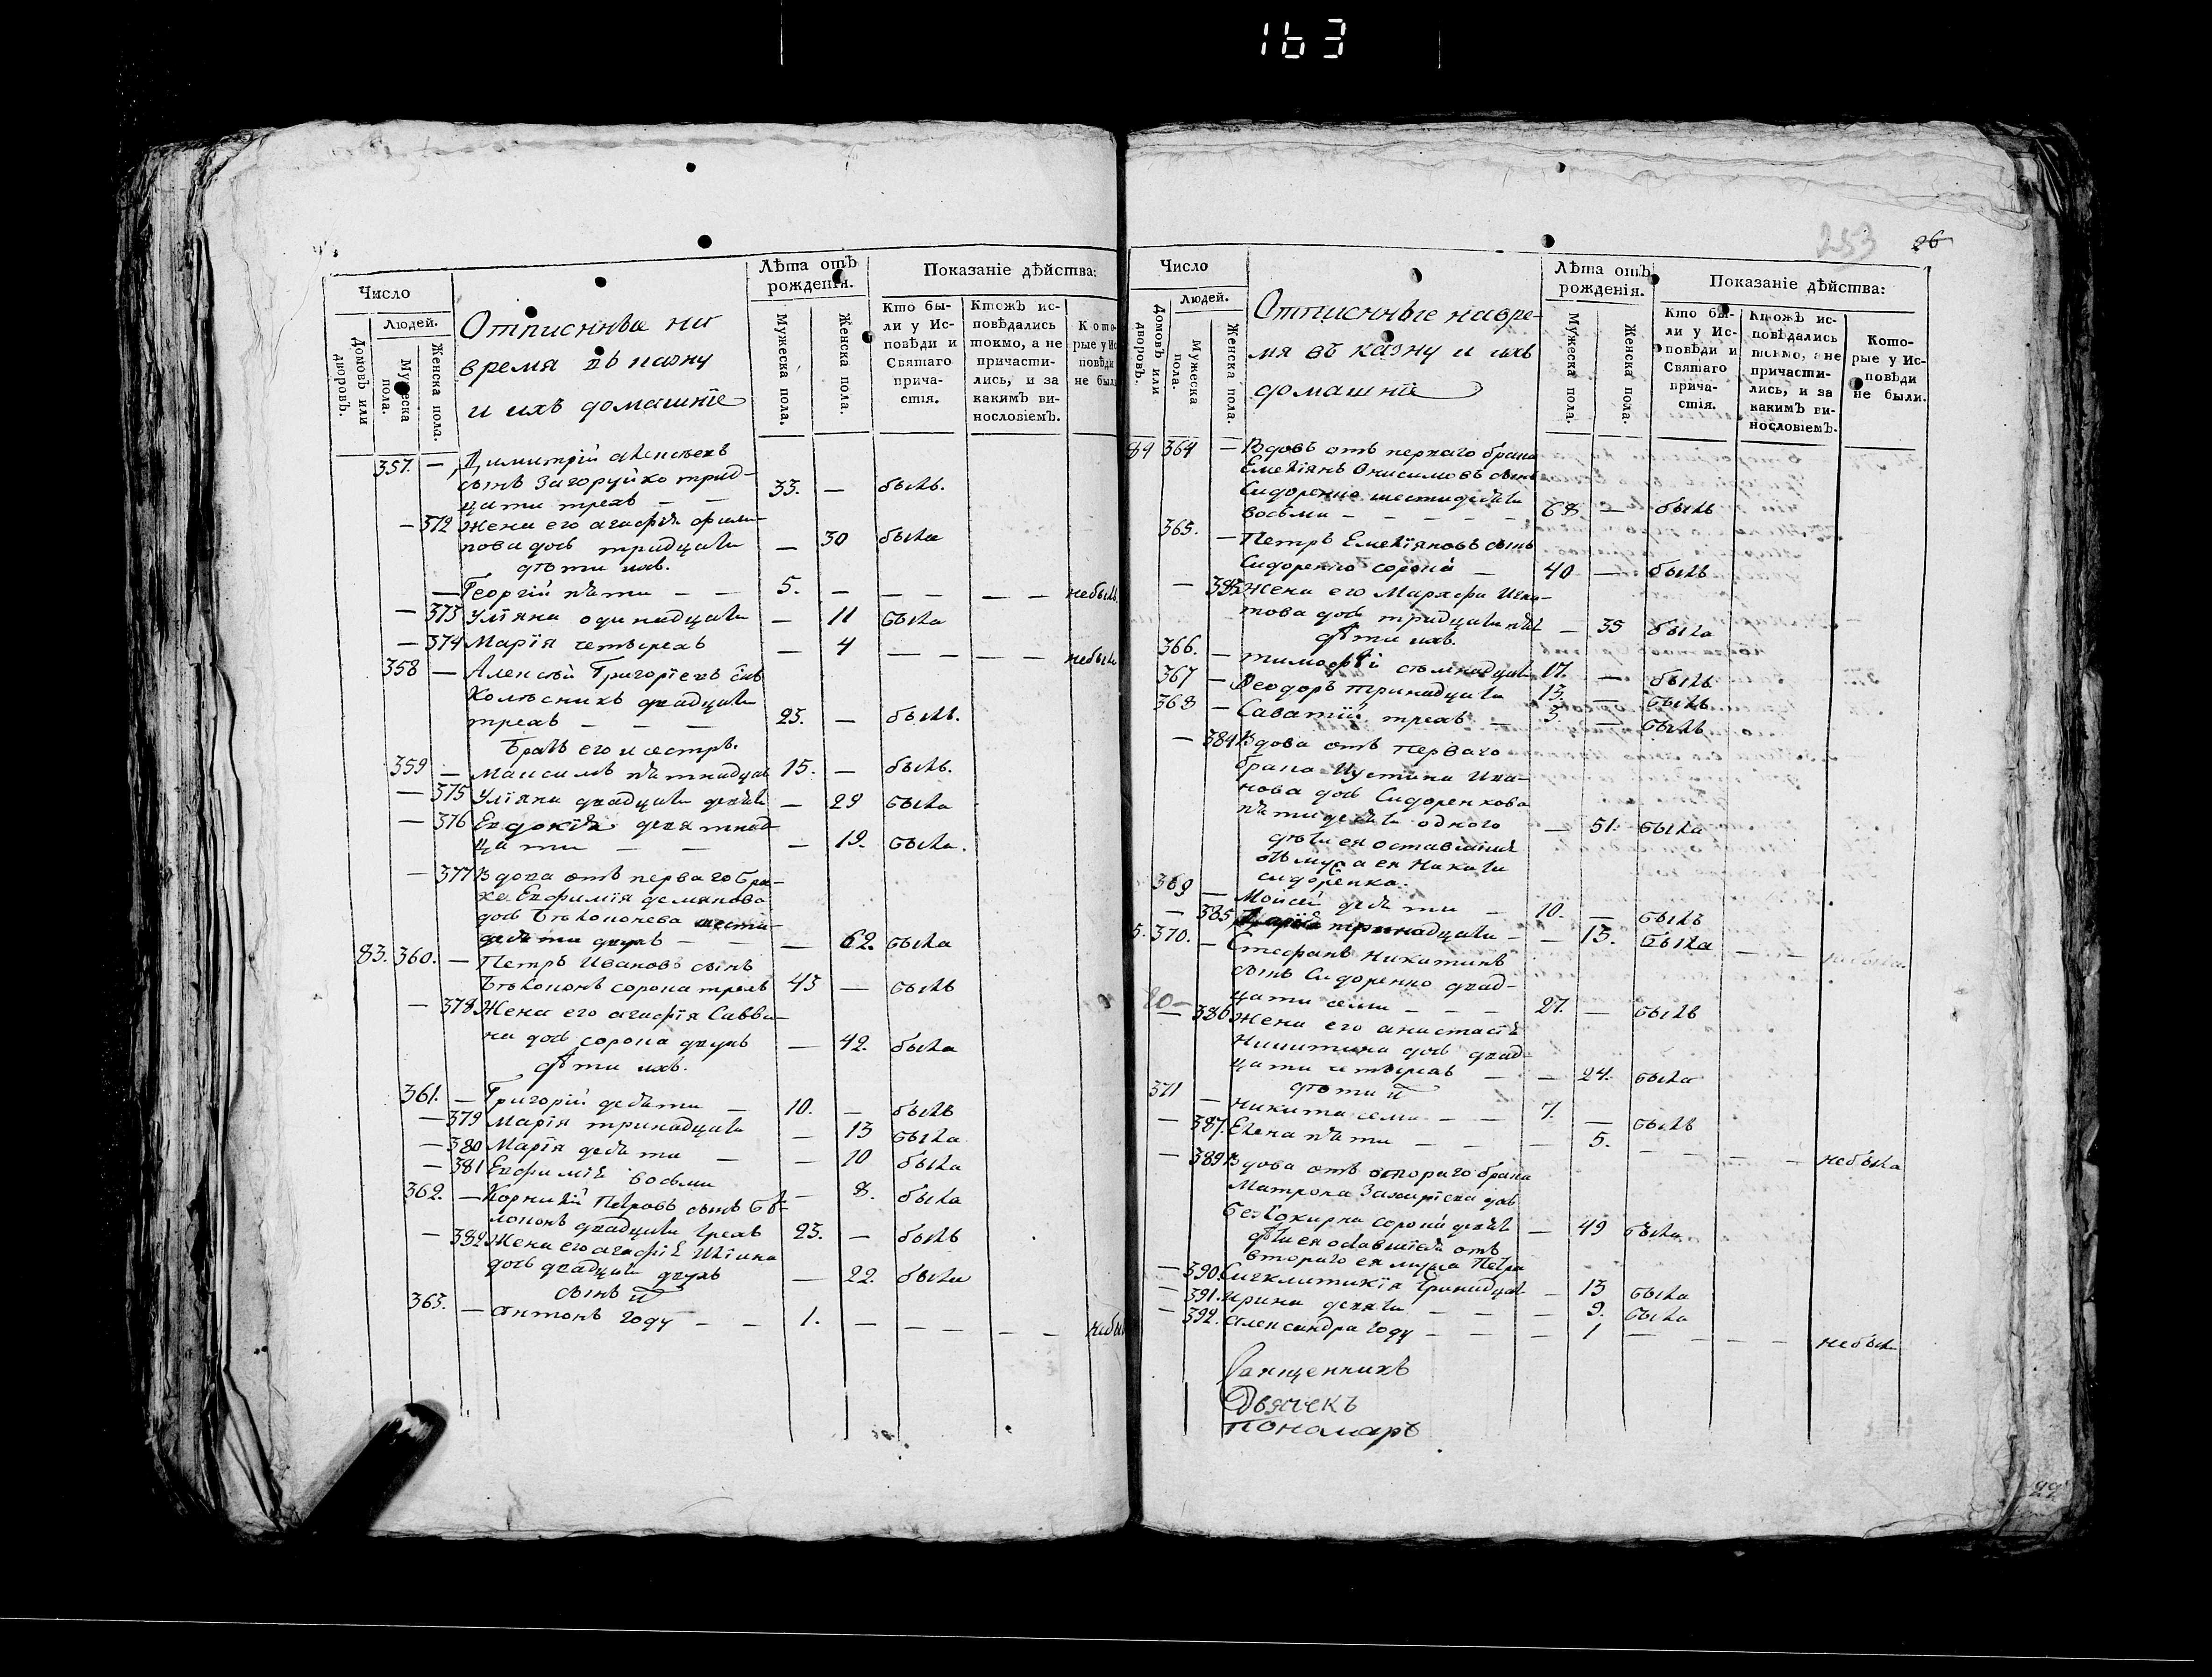 163
Число
Людей.
Домовъ или дворовъ.
Мужеска пола.
Женска пола.
Отписнные на
время въ казну
и ихъ домашніе
Лѣта отъ
рожденія.
Мужеска пола.
Женска пола.
Показаніе дѣйства:
Кто бы-
ли у Ис-
повѣди и
Святаго
прича-
стія.
Ктожъ ис-
повѣдались
токмо, а не
причасти-
лись, и за
какимъ ви-
нословіемъ.
Кото-
рые у Ис-
повѣди
не были
357. — Димитрій Алексѣевъ
сынъ Загоруйко трид-
цати трехъ — — 33. — былъ.
— 372 Жена его Агафія Филип-
пова дочь тридцати — 30 была
дѣти ихъ.
— Георгій пяти — — 5. — — — — — небылъ
— 373 Уліяна одинадцати — 11 была
— 374 Марія четырехъ — 4 — — — — небыла
358 — Алексѣй Григоріевъ снъ
Колѣсникъ двадцати
трехъ — — — 23. — былъ.
Братъ его и сестры.
359 — Максимъ пятнадцати 15. — былъ.
— 375 Уліяна двадцати девяти — 29 была
— 376 Евдокія девятнад-
цати — — — 19. была.
— 377 Вдова отъ перваго бра-
ка Евфимія Демянова
дочь Бѣлоконева шести-
десяти двухъ — — — 62. была
83. 360. — Петръ Ивановъ сынъ
Бѣлоконь сорока трехъ 43 — былъ
— 378 Жена его Агафія Савви-
на дочь сорока двухъ — 42. была
Дѣти ихъ.
361. — Григорій десяти — 10. — былъ
— 379 Марія тринадцати — 13 была
— 380 Марія десяти — — 10 была
— 381 Евфимія восьми — 8. была
362. — Корнилій Петровъ сынъ Бѣ-
локонь двадцати трехъ 23. — былъ
— 382 Жена его Агафія
дочь двадцати двухъ — 22. была
сынъ их
363. — Антонъ году — — 1. — — — — —
253
26
Число
Людей.
Домовъ или дворовъ.
Мужеска пола.
Женска пола.
Отписнные навре-
мя въ казну и ихъ
домашніе
Лѣта отъ
рожденія.
Мужеска пола.
Женска пола.
Показаніе дѣйства:
Кто бы-
ли у Ис-
повѣди и
Святаго
прича-
стія.
Ктожъ ис-
повѣдались
токмо, а не
причасти-
лись, и за
какимъ ви-
нословіемъ.
Кото-
рые у Ис-
повѣди
не были.
84 364 — Вдовъ отъ перваго брака
Емеліянъ Онисимовъ сынъ
Сидоренко шестидесяти
восьми — — — — — 68. — былъ
365. — Петръ Емеліяновъ сынъ
Сидоренко сорока — 40 — былъ
— 383 Жена его Марфа Игна-
това дочь тридцати пяти — 35 была
дѣти ихъ.
366. — Тимофѣй семнадцати 17. — былъ
367 — Ѳеодоръ тринадцати 13. — былъ
368 — Саватій трехъ — 3. — былъ
— 384 Вдова отъ перваго
брака Иустина Ива-
нова дочь Сидоренкова
пятидесяти одного — 51. была
дѣти ея оставшіися
отъ мужа ея Никиты
Сидоренка.
369 — Моисей десяти — 10. — былъ
— 385 Дарія тринадцати — — 13. была — — небыла.
5. 370. — Стефанъ Никитинъ
сынъ Сидоренко двад-
цати семи — — — 27. — былъ
— 386 Жена его Анастасія
Никитина дочь двад-
цати четырехъ — — 24. была
дѣти их
371 — Никита семи — — 7. — былъ
— 387. Елена пяти — — — 5. — — — — небыла
— 389 Вдова отъ втораго брака
Матрона Захаріева дочь
сорока девяти — 49 была
дѣти ея оставшіися отъ
втораго ея мужа Петра
— 390. Сигклитикія тринадцати — 13 была
— 391. Ирина девяти — — — 9. была
— 392. Александра году — — — 1 — — — — небыла
Священникъ
Дьячекъ
Пономарь